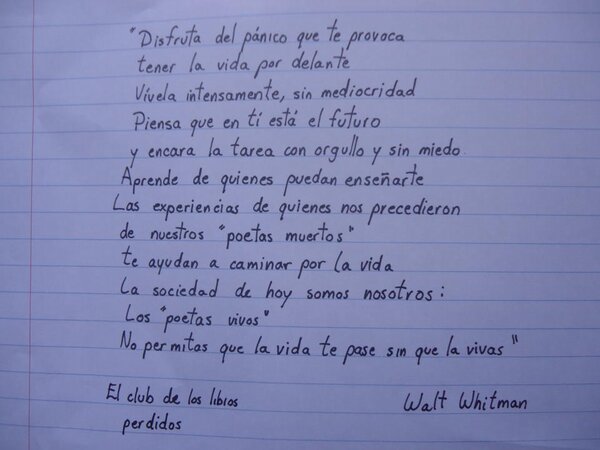 "Disfruta del pánico que te provoca
tener la vida por delante
Vívela intensamente, sin mediocridad
Piensa que en tí está el futuro
y encara la tarea con orgullo y sin miedo.
Aprende de quienes puedan enseñarte
Las experiencias de quienes nos precedieron
de nuestros "poetas muertos"
te ayudan a caminar por la vida
La sociedad de hoy somos nosotros:
Los "poetas vivos"
No permitas que la vida te pase sin que la vivas"
El club de los libros
perdidos
Walt Whitman